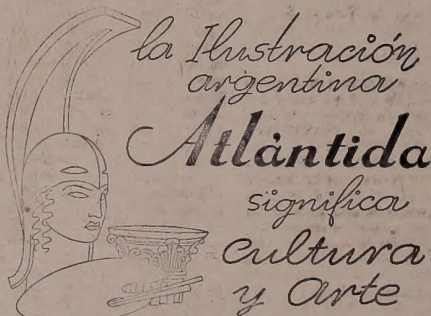 la Ilustración
argentina
Atlántida
significa
cultura
y Arte